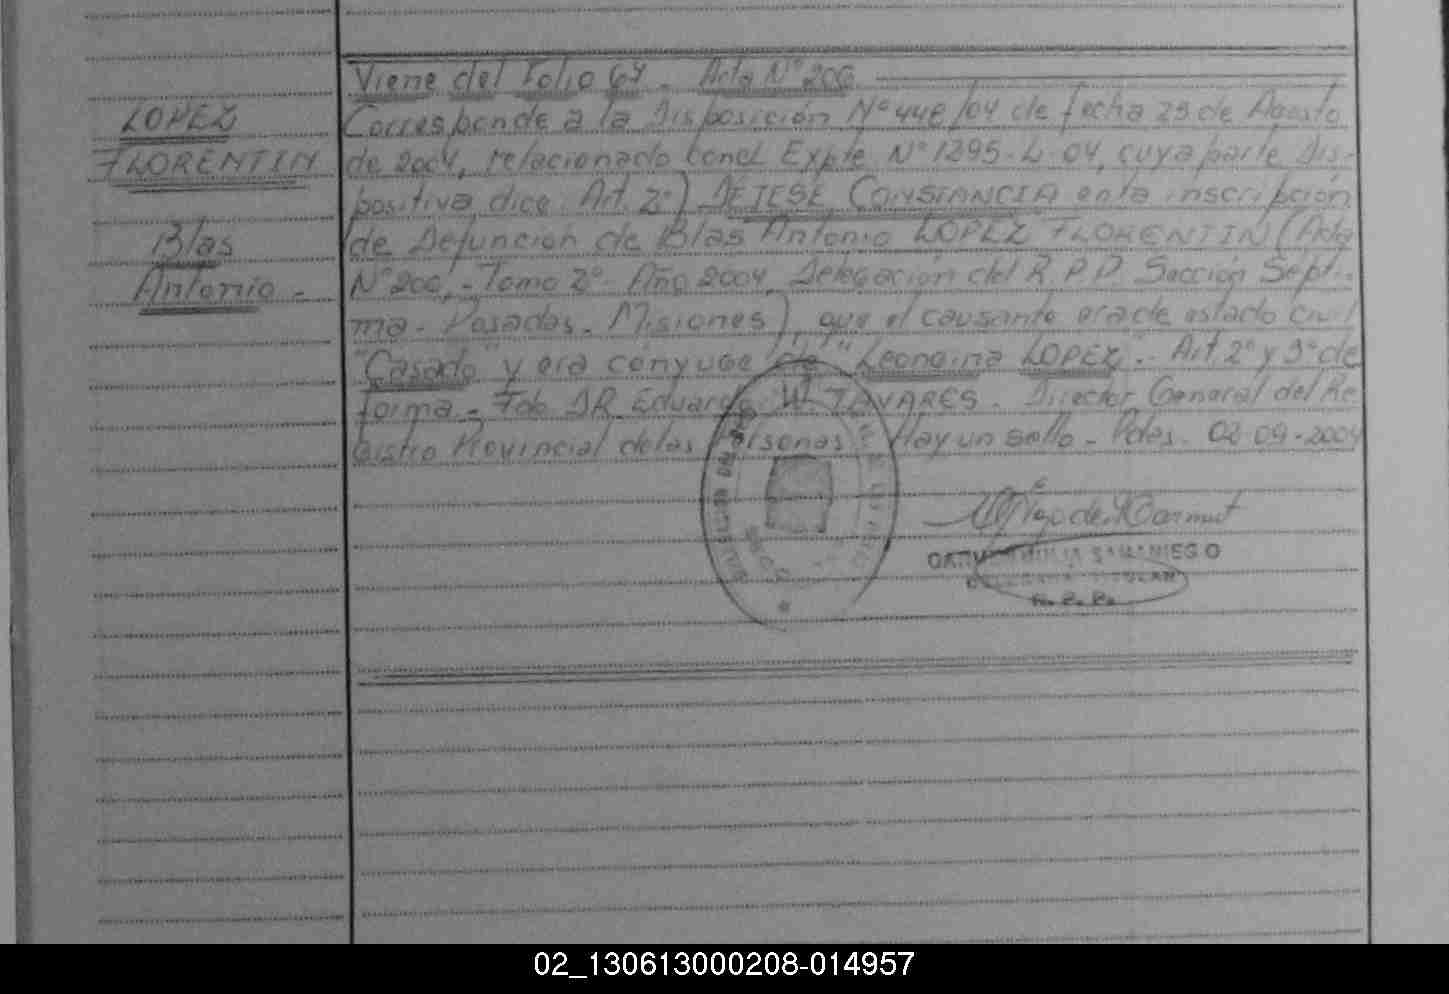 LOPEZ
FLORENTIN
Blas
Antonio -
Viene del Folio 64 - Acta N° 206
Corresponde a la Disposición N° 448/04 de fecha 25 de Agosto
de 2004, relacionado con el Expte N° 1295-L-04, cuya parte dis-
positiva dice: Art. 2°) DEJESE CONSTANCIA en la inscripción
de Defuncion de Blas Antonio LOPEZ FLORENTIN (Acta
N° 206, - Tomo 2° - Año 2004, Delegación del R.P.P. Sección Septi-
ma - Posadas - Misiones), que el causante era de estado civil
"Casado" y era conyuge de "Leongina LOPEZ" - Art. 2° y 3° de
forma - Fdo DR. Eduardo W. TAVARES - Director General del Re
gistro Provincial de las Personas - Hay un sello - Pdas. 02-09-2004
SAMANIEGO
TITULAR
R. P. P.
02_130613000208-014957